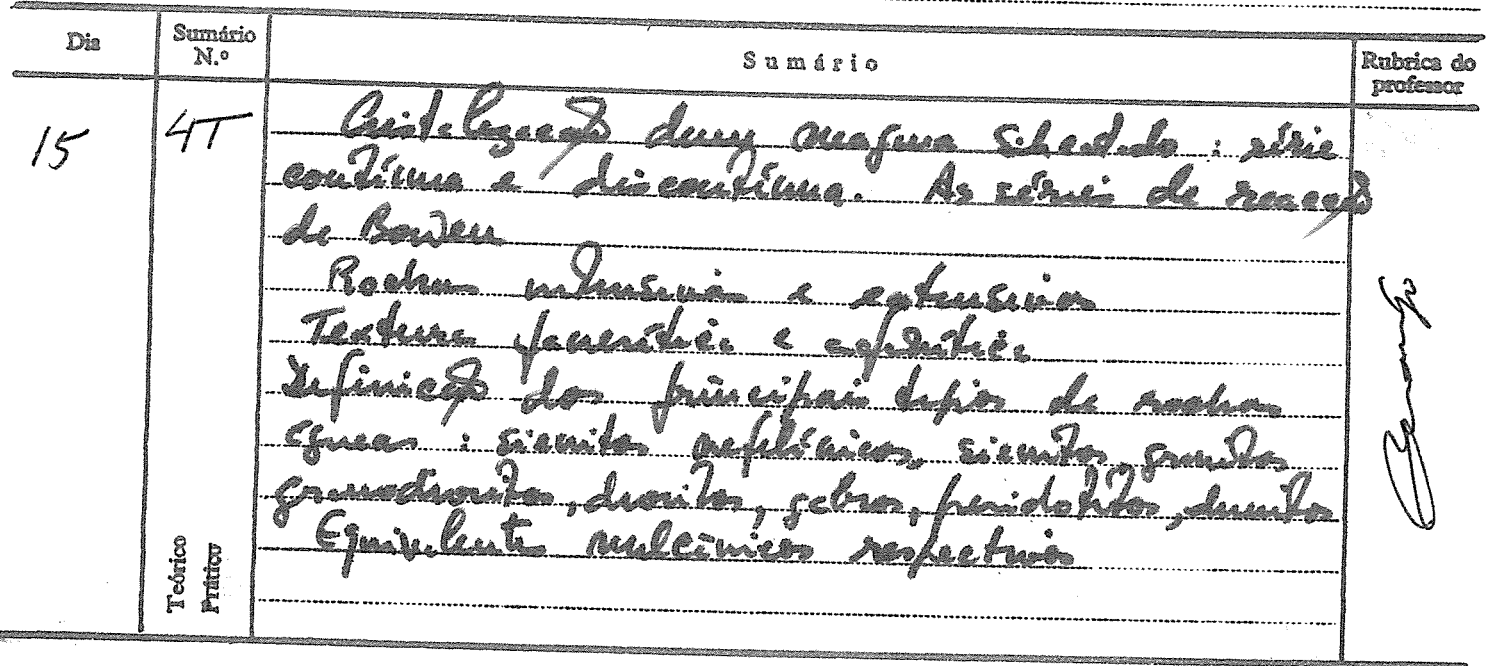 Dia
Sumário N.º
Sumário
Rubrica do professor
15
4T
Cristalização dum magma silicatado : série
contínua e discontínua. As séries de reacção
de Bowen
Rochas intrusivas e extrusivas
Textura fanerítica e afanítica
Definição dos principais tipos de rochas
ígneas : sienitos nefelínicos, sienitos, granitos
granodioritos, dioritos, gabros, peridotitos, dunitos
Equivalentes vulcânicos respectivos
Teórico
Prático